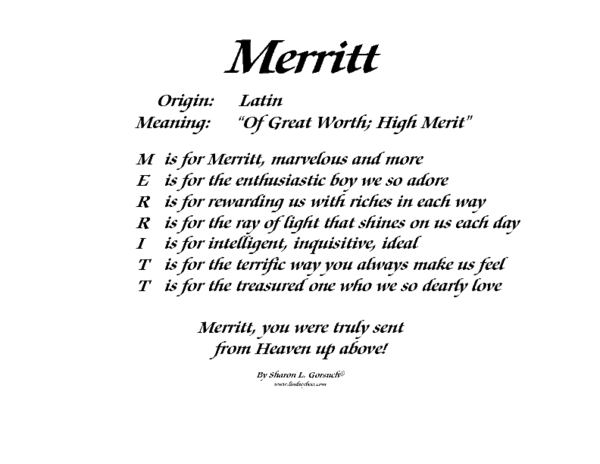 Merritt
Origin: Latin
Meaning: "Of Great Worth; High Merit"
M is for Merritt, marvelous and more
E is for the enthusiastic boy we so adore
R is for rewarding us with riches in each way
R is for the ray of light that shines on us each day
I is for intelligent, inquisitive, ideal
T is for the terrific way you always make us feel
T is for the treasured one who we so dearly love
Merritt, you were truly sent
from Heaven up above!
By Sharon L. Gorsuch©